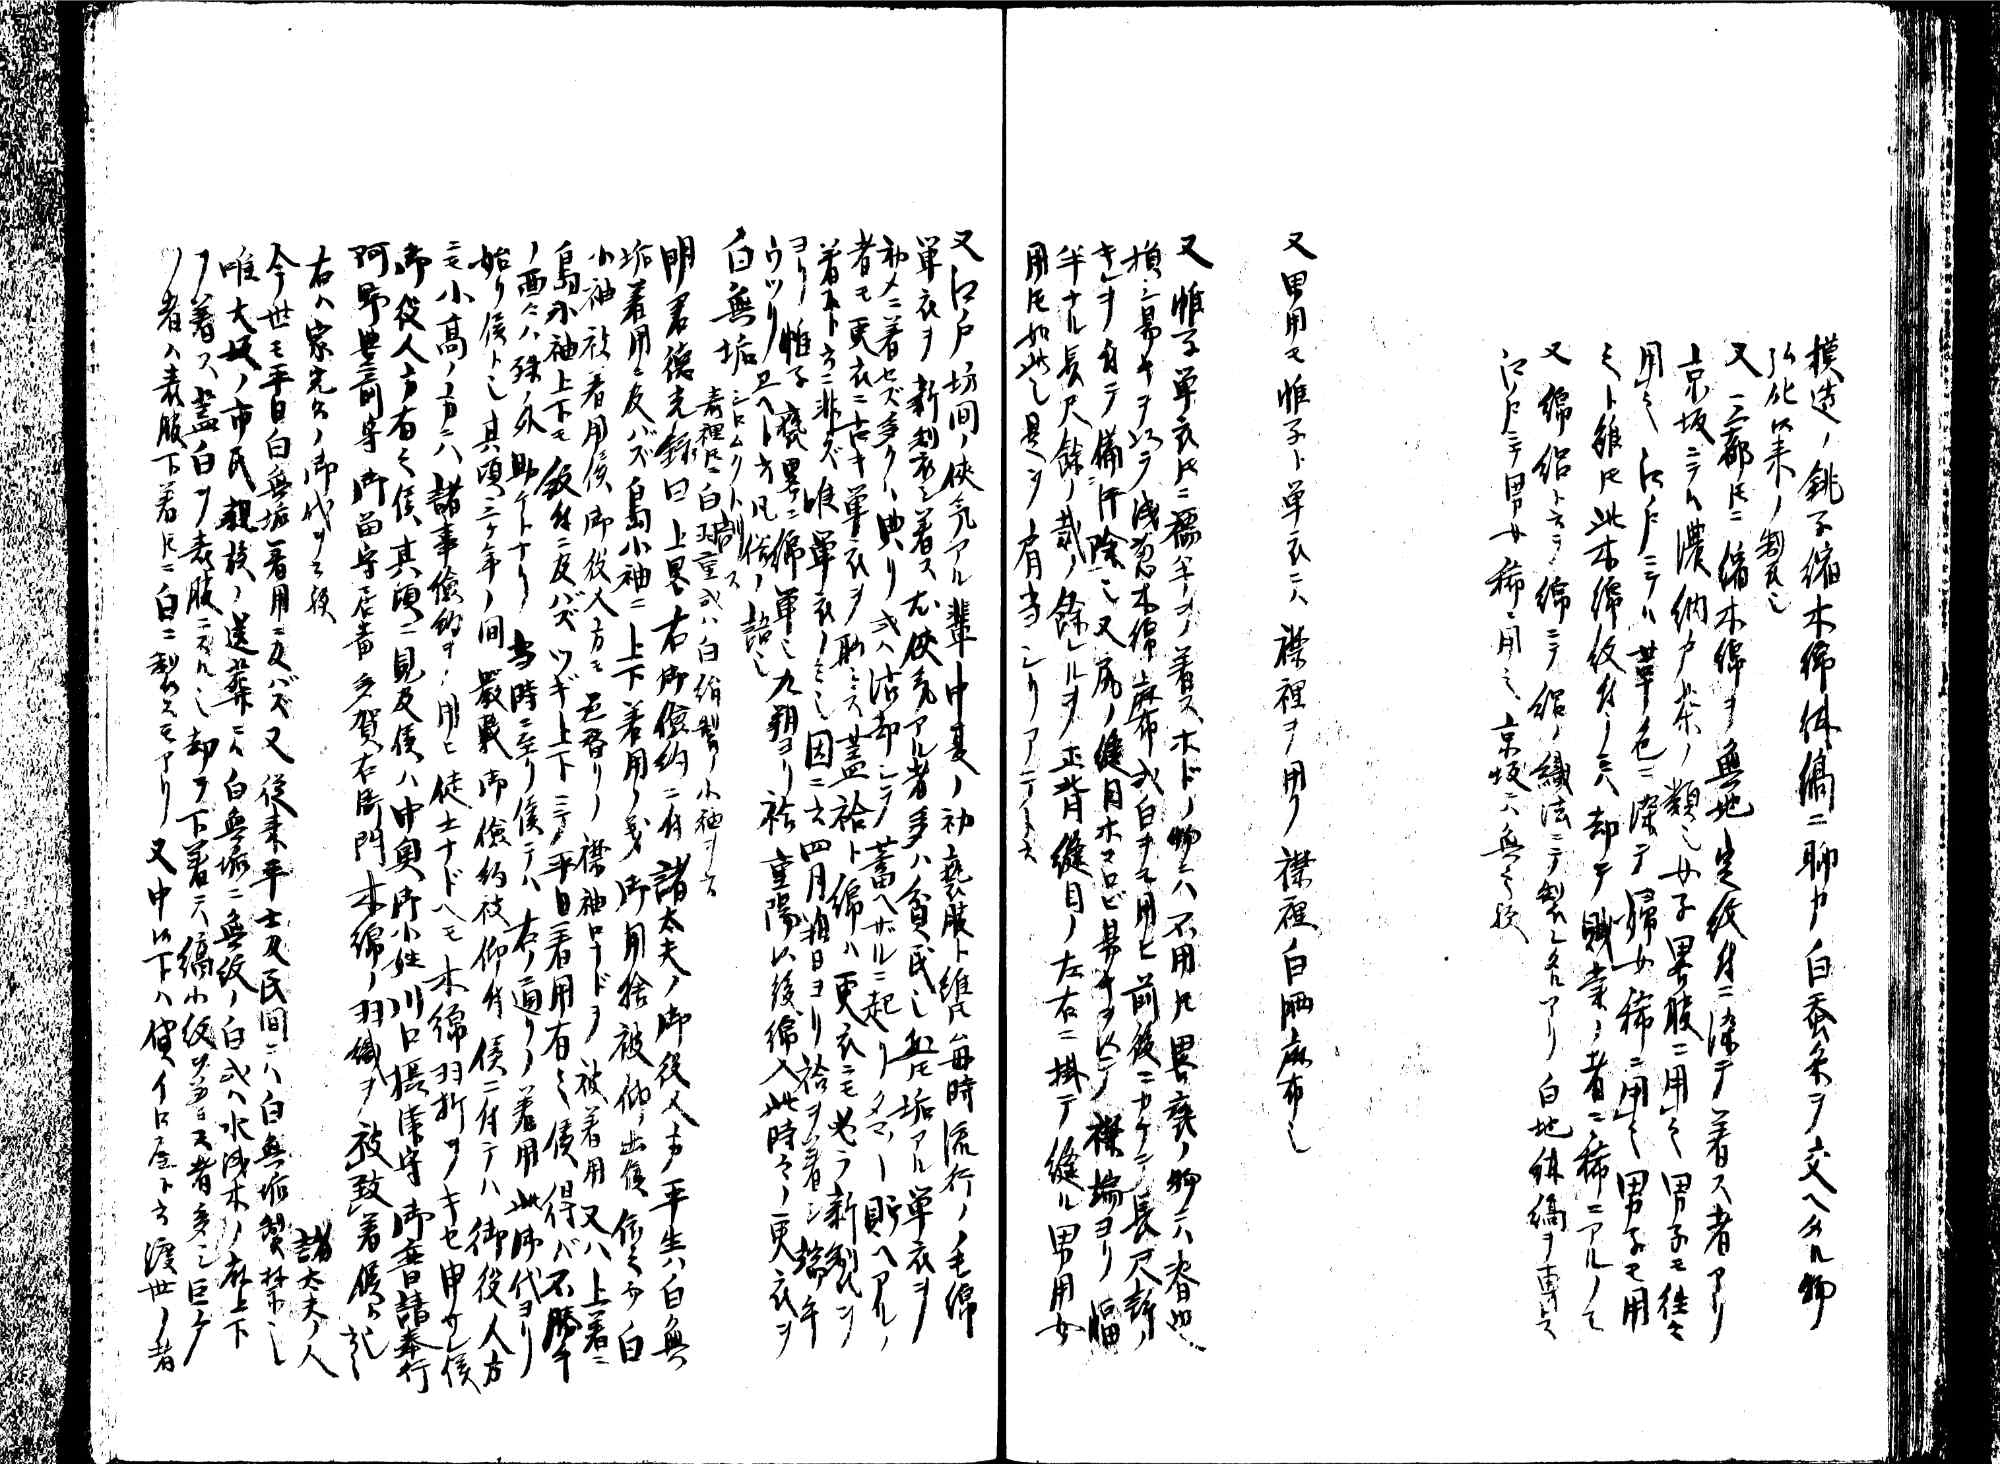 模造ノ銚子縮木綿絣縞ニ聊カ白蚕糸ヲ交ヘタル物
弘化以来ノ製也
又 三都トモニ縮木綿ヲ無地定紋付ニ染テ着ス者アリ
京坂ニテハ濃納戸茶ノ類也女子畧服ニ用之男子モ往々
用之江戸ニテハ 色ニ染テ婦女稀ニ用之男子モ用
之ト雖トモ此木綿紋付ノミハ却テ賤業ノ者ニ稀ニアルノミ
又 綿絽ト云テ綿ニテ絽ノ織法ニテ製シタルアリ白地絣縞ヲ専トス
江戸ニテ男女稀ニ用之京坂ハ無之歟
又男用モ帷子ト単衣ニハ襟裡ヲ用フ襟裡白晒麻布也
又帷子単衣トモニ襦半ヲ着スホドノ物ニハ不用トモ畧褻ノ物ニハ
損シ易キヲ以テ浅葱木綿麻布或白ヲモ用ヒ前後ニカケテ長尺許ノ
キレヲ付テ備汗除之又尻ノ縫目ホコロビ易キヲ以テ襟端ヨリ幅
半ナル長尺余ノ裁ノ余レルヲ正背縫目ノ左右ニ掛テ縫ル男用女
用トモ如此也是ヲ 当 シリアテト云
又江戸坊間ノ侠気アル輩中夏ノ初褻服ト雖トモ毎時流行ノ毛綿
単衣ヲ新製衣シ着ス右侠気アル者多ハ貧民也然トモ垢アル単衣ヲ
初メニ着セズ多クハ典リ或ハ沽却シテ蓄ヘザルニ起リタマタマ貯ヘアルノ
者モ更衣ニ古キ単衣ヲ恥トス蓋袷ト綿ハ更衣ニモ必ラ新製ヲ
着スト云ニ非ズ唯単衣ノミ也因ニ云四月朔日ヨリ袷ヲ着シ端午
ヨリ帷子褻畧ニ綿単也九朔ヨリ袷重陽以後綿入此時々ノ更衣ヲ
ウツリカヘト云凡俗ノ語也
白無垢 シロムクト訓ス 表裡トモニ白羽重或ハ白絹製ノ小袖ヲ云
明君徳光録曰上畧右御倹約ニ付諸太夫ノ御役人方平生ハ白無
垢着用ニ及バズ島小袖ニ上下着用ノ義御用捨被仰出候依之今白
小袖被着用候御役人方モ色替リノ襟袖口ナドヲ被着用又ハ上着ニ
島小袖上下モ紋付ニ及バズツギ上下ニテ平日着用有之候得バ不勝手
ノ面々ハ殊ノ外助ケトナリ当時ニ至リ候テハ右ノ通リノ着用此御代ヨリ
始リ候ト也其頃三ケ年ノ間厳敷御倹約被仰付候ニ付テハ御役人方
ニモ小高ノ方ハ諸事倹約ヲ用ヒ徒士ナドヘモ木綿羽折ヲキセ申サレ候
御役人方有之候其頃ニ見及候ハ中奥御小姓川口摂津守御普請奉行
阿野豊前守御留守居番多賀右衛門木綿ノ羽織ヲ被致着候ト云々
右ハ家宣公ノ御代ヲ云歟
諸太夫ノ人
今世モ平日白無垢着用ニ及バズ又従来平士及民間ニハ白無垢製禁也
唯大坂ノ市民親族ノ送葬ニハ白無垢ニ無紋ノ白或ハ水浅木ノ麻上下
ヲ着ス蓋白ヲ表服ニスル也却テ下着ニハ縞小紋等ヲ着ス者多シ巨戸
ノ者ハ表服下着トモニ白ニ製スモアリ又中以下ハ貸イロ屋ト云渡世ノ者